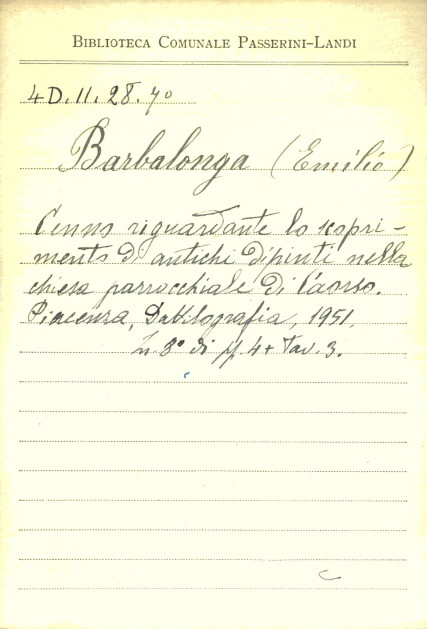 BIBLIOTECA COMUNALE PASSERINI-LANDI
4 D. 11. 28. 7º
Barbalonga (Emilio)
Cenno riguardante lo scopri-
mento di antichi dipinti nella
chiesa parrocchiale di Caorso.
Piacenza, Dattilografia, 1951.
In 8º di pp. 4 + Tav. 3.